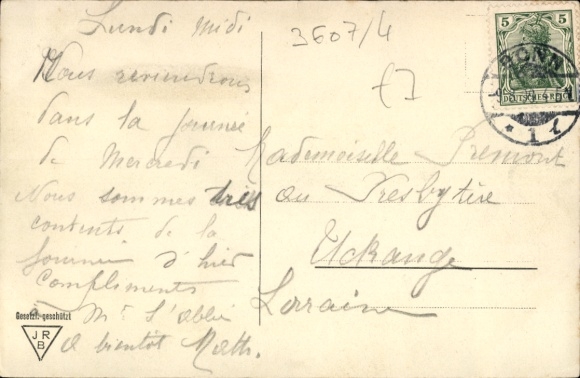 Lundi midi
Nous reviendrons
dans la journée
de Mercredi
Nous sommes très
contents de la
journée d'hier
Compliments
à Mr l'abbé
A bientôt Math.
Gesetzl. geschützt
JR
B
3607/4
5 5
DEUTSCHES REICH
BONN
* 1 l
Mademoiselle Premont
au Presbytère
Uckange
Lorraine